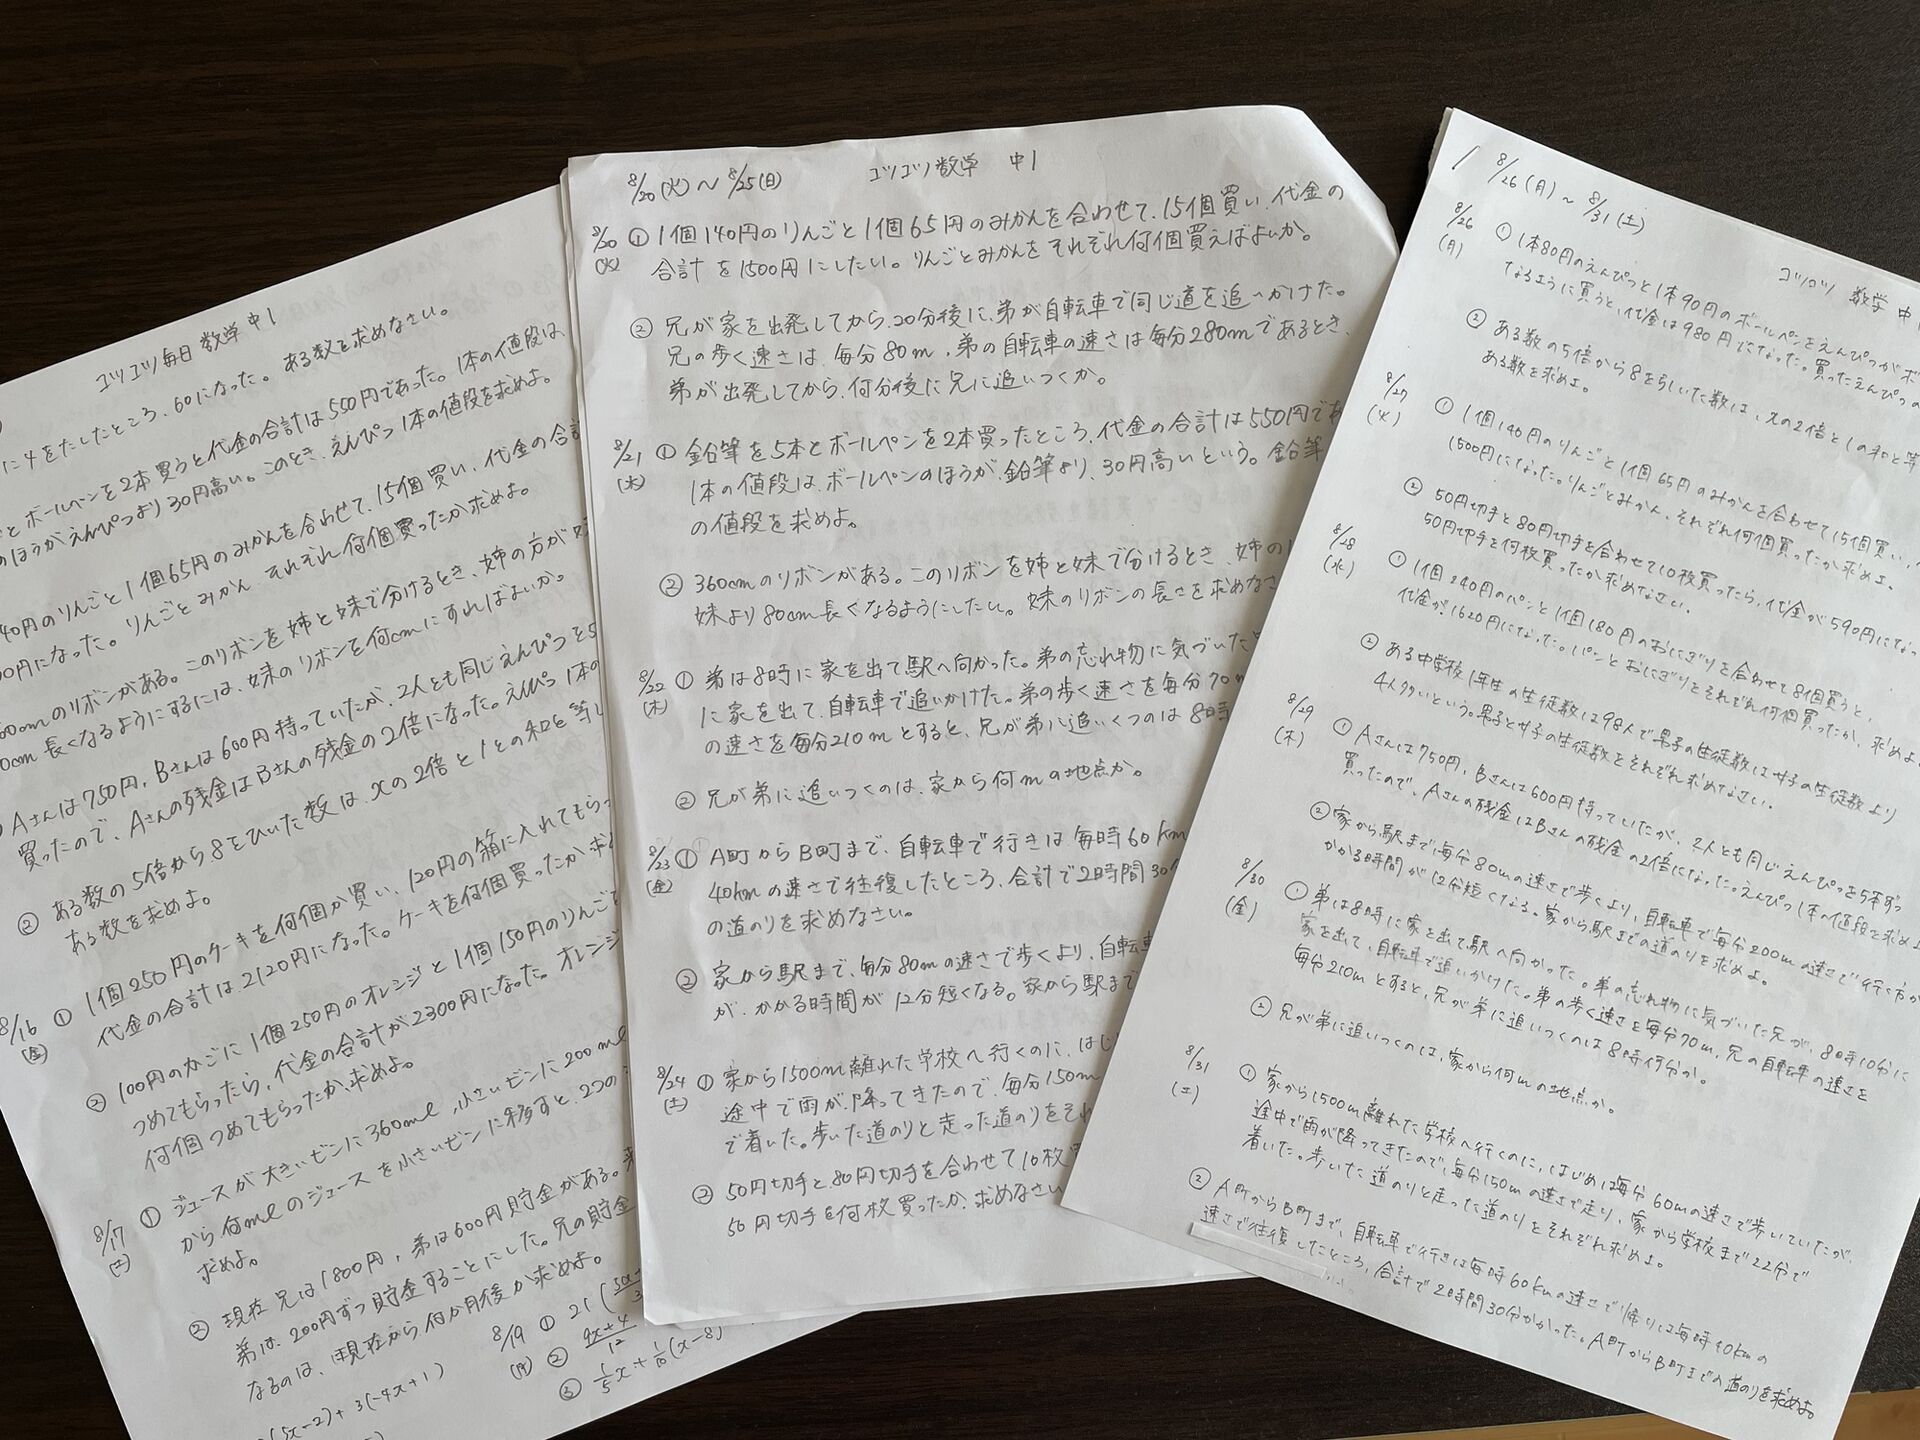 コツコツ毎日 数学 中1
に4をたしたところ、60になった。ある数を求めなさい。
とボールペンを2本買うと代金の合計は550円であった。1本の値段は、
のほうがえんぴつより30円高い。このとき、えんぴつ1本の値段を求めよ。
40円のりんごと1個65円のみかんを合わせて、15個買い、代金の合計
00円になった。りんごとみかん、それぞれ何個買ったか求めよ。
60cmのリボンがある。このリボンを姉と妹で分けるとき、姉の方が妹
0cm長くなるようにするには、妹のリボンを何cmにすればよいか。
Aさんは750円、Bさんは600円持っていたが、2人とも同じえんぴつを5
買ったので、Aさんの残金はBさんの残金の2倍になった。えんぴつ1本の
② ある数の5倍から8をひいた数は、xの2倍と1との和と等し
ある数を求めよ。
8/16 ① 1個250円のケーキを何個か買い、120円の箱に入れてもら
(金) 代金の合計は2120円になった。ケーキを何個買ったか求
② 100円のかごに1個250円のオレンジと1個150円のりんごを
つめてもらったら、代金の合計が2300円になった。オレンジ
何個つめてもらったか、求めよ。
8/17 ① ジュースが大きいビンに360ml、小さいビンに200ml
(土) から何mlのジュースを小さいビンに移すと、2つの
求めよ。
② 現在兄は1800円、弟は600円貯金がある。来
弟は、200円ずつ貯金することにした。兄の貯金
なるのは、現在から何か月後か求めよ。
8/19 ① 21(
(月) ② 9x+4/12
③ 1/5x+1/10(x-8)
(5x-2)+3(-4x+1)
8/20(火)～8/25(日) コツコツ数学 中1
8/20 ① 1個140円のりんごと1個65円のみかんを合わせて、15個買い、代金の
(火) 合計を1500円にしたい。りんごとみかんをそれぞれ何個買えばよいか。
② 兄が家を出発してから、20分後に、弟が自転車で同じ道を追いかけた。
兄の歩く速さは、毎分80m、弟の自転車の速さは毎分280mであるとき、
弟が出発してから、何分後に兄に追いつくか。
8/21 ① 鉛筆を5本とボールペンを2本買ったところ、代金の合計は550円であ
(水) 1本の値段は、ボールペンのほうが、鉛筆より、30円高いという。鉛筆
の値段を求めよ。
② 360cmのリボンがある。このリボンを姉と妹で分けるとき、姉の
妹より80cm長くなるようにしたい。妹のリボンの長さを求めなさ
8/22 ① 弟は8時に家を出て駅へ向かった。弟の忘れ物に気づいた
(木) に家を出て、自転車で追いかけた。弟の歩く速さを毎分70m
の速さを毎分210mとすると、兄が弟に追いくつのは8時
② 兄が弟に追いつくのは、家から何mの地点か。
8/23 ① A町からB町まで、自転車で行きは毎時60km
(金) 40kmの速さで往復したところ、合計で2時間30
の道のりを求めなさい。
② 家から駅まで、毎分80mの速さで歩くより、自転車
が、かかる時間が12分短くなる。家から駅まで
8/24 ① 家から1500m離れた学校へ行くのに、はじ
(土) 途中で雨が降ってきたので、毎分150m
で着いた。歩いた道のりと走った道のりをそれ
② 50円切手と、80円切手を合わせて10枚
50円切手を何枚買ったか、求めなさい
8/26(月)～8/31(土)
コツコツ 数学 中
8/26 ① 1本80円のえんぴつと1本90円のボールペンをえんぴつがボ
(月) なるように買うと、代金は980円になった。買ったえんぴつの
② ある数の5倍から8をらしいた数は、xの2倍と1の和と等
ある数を求めよ。
8/27 ① 1個140円のりんごと1個65円のみかんを合わせて15個買い、
(火) 1500円になった。りんごとみかん、それぞれ何個買ったか求めよ。
② 50円切手と80円切手を合わせて10枚買ったら、代金が590円になっ
50円切手を何枚買ったか求めなさい。
8/28 ① 1個240円のパンと1個180円のおにぎりを合わせて8個買うと、
(水) 代金が、1620円になった。パンとおにぎりをそれぞれ何個買ったか、求めよ。
② ある中学校1年生の生徒数は98人で男子の生徒数は女子の生徒数より
4人多いという。男子と女子の生徒数をそれぞれ求めなさい。
8/29 ① Aさんは750円、Bさんは600円持っていたが、2人とも同じえんぴつを5本ずつ
(木) 買ったので、Aさんの残金はBさんの残金の2倍になった。えんぴつ1本の値段を求めよ
② 家から駅まで、毎分80mの速さで歩くより、自転車で毎分200mの速さで行く方が
かかる時間が12分短くなる。家から駅までの道のりを求めよ。
8/30 ① 弟は8時に家を出て駅へ向かった。弟の忘れ物に気づいた兄が、8時10分に
(金) 家を出て、自転車で追いかけた。弟の歩く速さを毎分70m、兄の自転車の速さを
毎分210mとすると、兄が弟に追いつくのは8時何分か。
② 兄が弟に追いつくのは、家から何mの地点か。
8/31 ① 家から1500m離れた学校へ行くのに、はじめは毎分60mの速さで歩いていたが、
(土) 途中で雨が降ってきたので、毎分150mの速さで走り、家から学校まで22分で
着いた。歩いた道のりと走った道のりをそれぞれ求めよ。
② A町からB町まで、自転車で行きは毎時60kmの速さで帰りは毎時40kmの
速さで往復したところ、合計で2時間30分かかった。A町からB町までの道のりを求めよ。